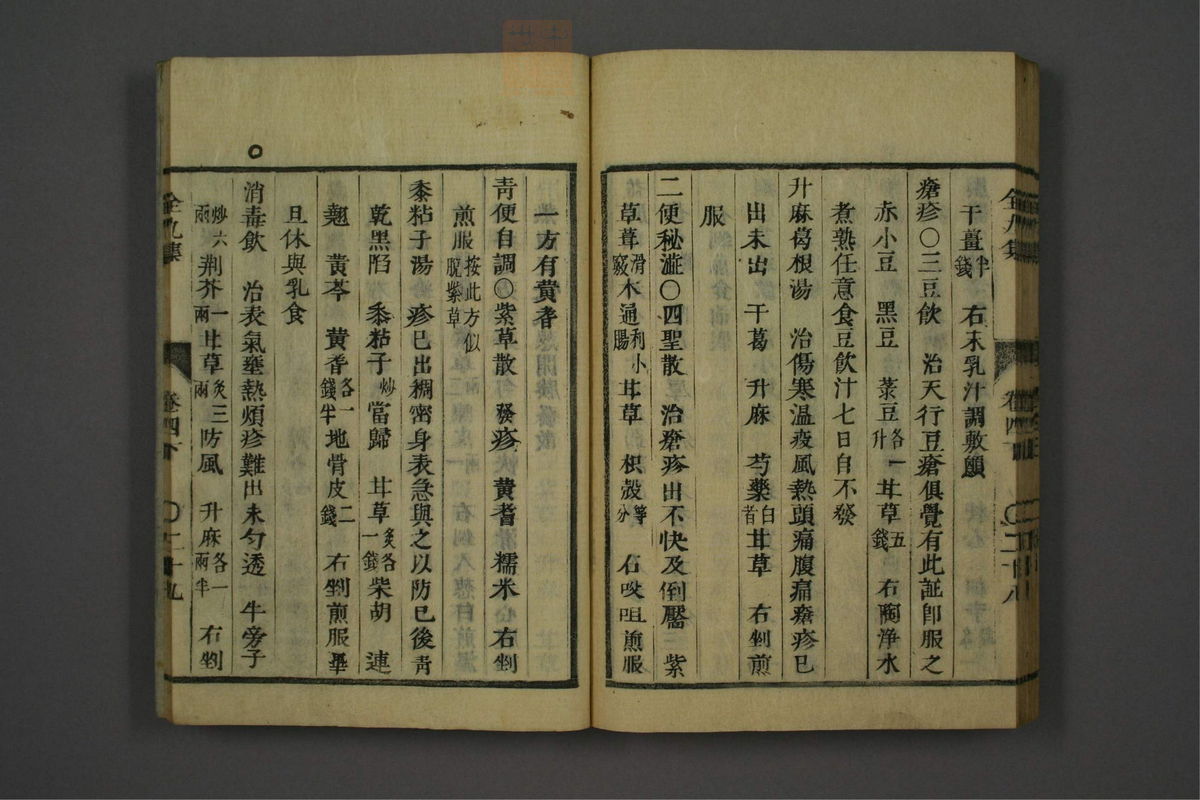 干薑半錢　右末乳汁調敷顖
瘡疹〇三豆飲　治天行豆瘡俱覺有此証卽服之
赤小豆　黑豆　菉豆各一升　甘草五錢　右陶浄水
煮熟任意食豆飲汁七日自不發
升麻葛根湯　治傷寒温疫風熱頭痛腹痛瘡疹已
出未出　干葛　升麻　芍藥白者　甘草　右剉煎
服
二便秘澁〇四聖散　治瘡疹出不快及倒黶　紫
草茸滑竅　木通利小腸　甘草　枳殼等分　右㕮咀煎服
一方有黄耆
靑便自調〇紫草散　發疹　黄耆　糯米　右剉
煎服按此方似脫紫草
黍粘子湯　疹已出稠密身表急與之以防已後靑
乾黑陷　黍粘子炒　當歸　甘草炙各一錢　柴胡　連
翹　黄芩　黄耆各一錢半　地骨皮二錢　右剉煎服畢
且休與乳食
消毒飲　治表氣壅熱煩疹難出未勻透　牛旁子
炒六兩　荆芥一兩　甘草炙三兩　防風　升麻各一兩半　右剉
卷四下
〇二十九